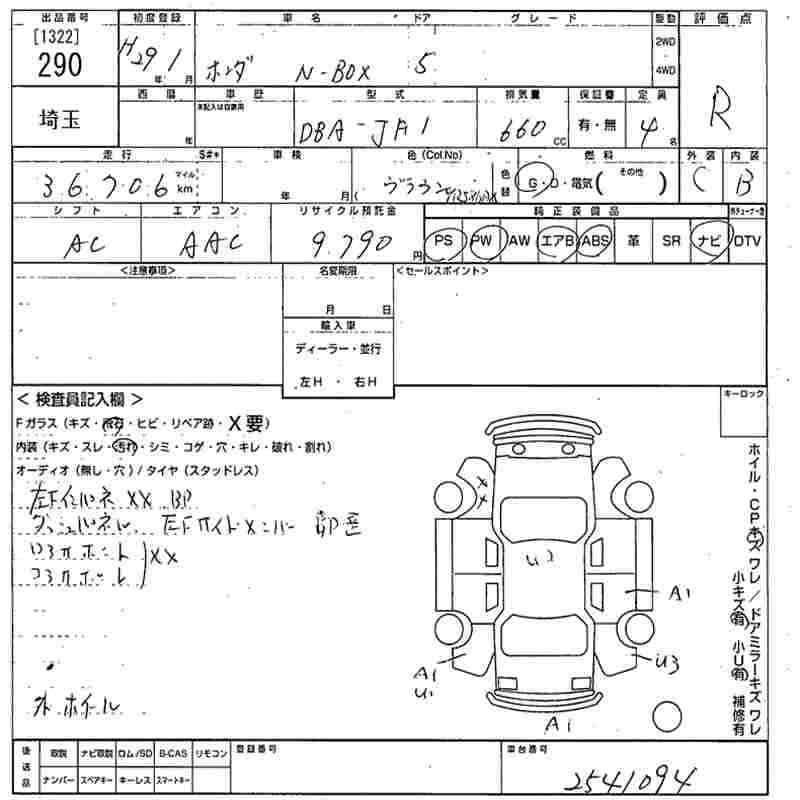 出品番号 初度登録 車名 ドア グレード 駆動 評価点
[1322] 290 H29年 1月 ホンダ N-BOX 5 2WD 4WD R
埼玉 西暦 年 車歴 本記入は自家用 型式 DBA-JF1 排気量 660 cc 保証書 有・無 定員 4名
走行 S#* 36,706 マイル km 車検 年 月 色(Col.No) ブラウン 色替 燃料 G・D・電気( その他 ) 外装 C 内装 B
シフト AC エアコン AAC リサイクル預託金 9,790円 純正装備品
PS PW AW エアB ABS 革 SR ナビ DTV
<注意事項> 名変期限 月 日 <セールスポイント>
輸入車
ディーラー・並行
左H ・ 右H
キーロック
< 検査員記入欄 >
Fガラス(キズ・飛石・ヒビ・リペア跡・X要)
内装(キズ・スレ・汚れ・シミ・コゲ・穴・キレ・破れ・割れ)
オーディオ(無し・穴)/タイヤ(スタッドレス)
左Fインパネ XX BP
XX
外ホイール
U2
A1
U3
A1
U1
A1
ホイル・CPキズワレ/ドアミラーキズワレ
小キズ有 小U有 補修有
後送品 取説 ナビ取説 ロム/SD B-CAS リモコン 登録番号 車台番号
ナンバー スペアキー キーレス スマートキー 2541094